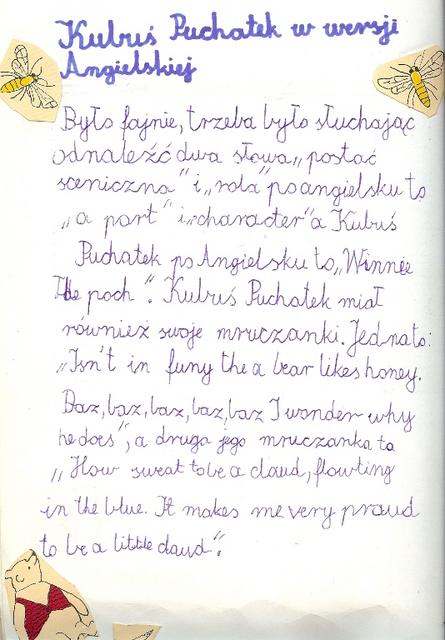 Kubuś Puchatek w wersji
Angielskiej
Było fajnie, trzeba było słuchając
odnaleźć dwa słowa „postać
sceniczna” i „rola” po angielsku to
„a part” i „character” a Kubuś
Puchatek po Angielsku to „Winnie
the pooh”. Kubuś Puchatek miał
również swoje mruczanki. Jedna to:
„Isn't in funy the a bear likes honey.
Baz, baz, baz, baz, baz I wonder why
he does”, a druga jego mruczanka to
„How sweat to be a claud, flowting
in the blue. It makes me very proud
to be a little claud”.